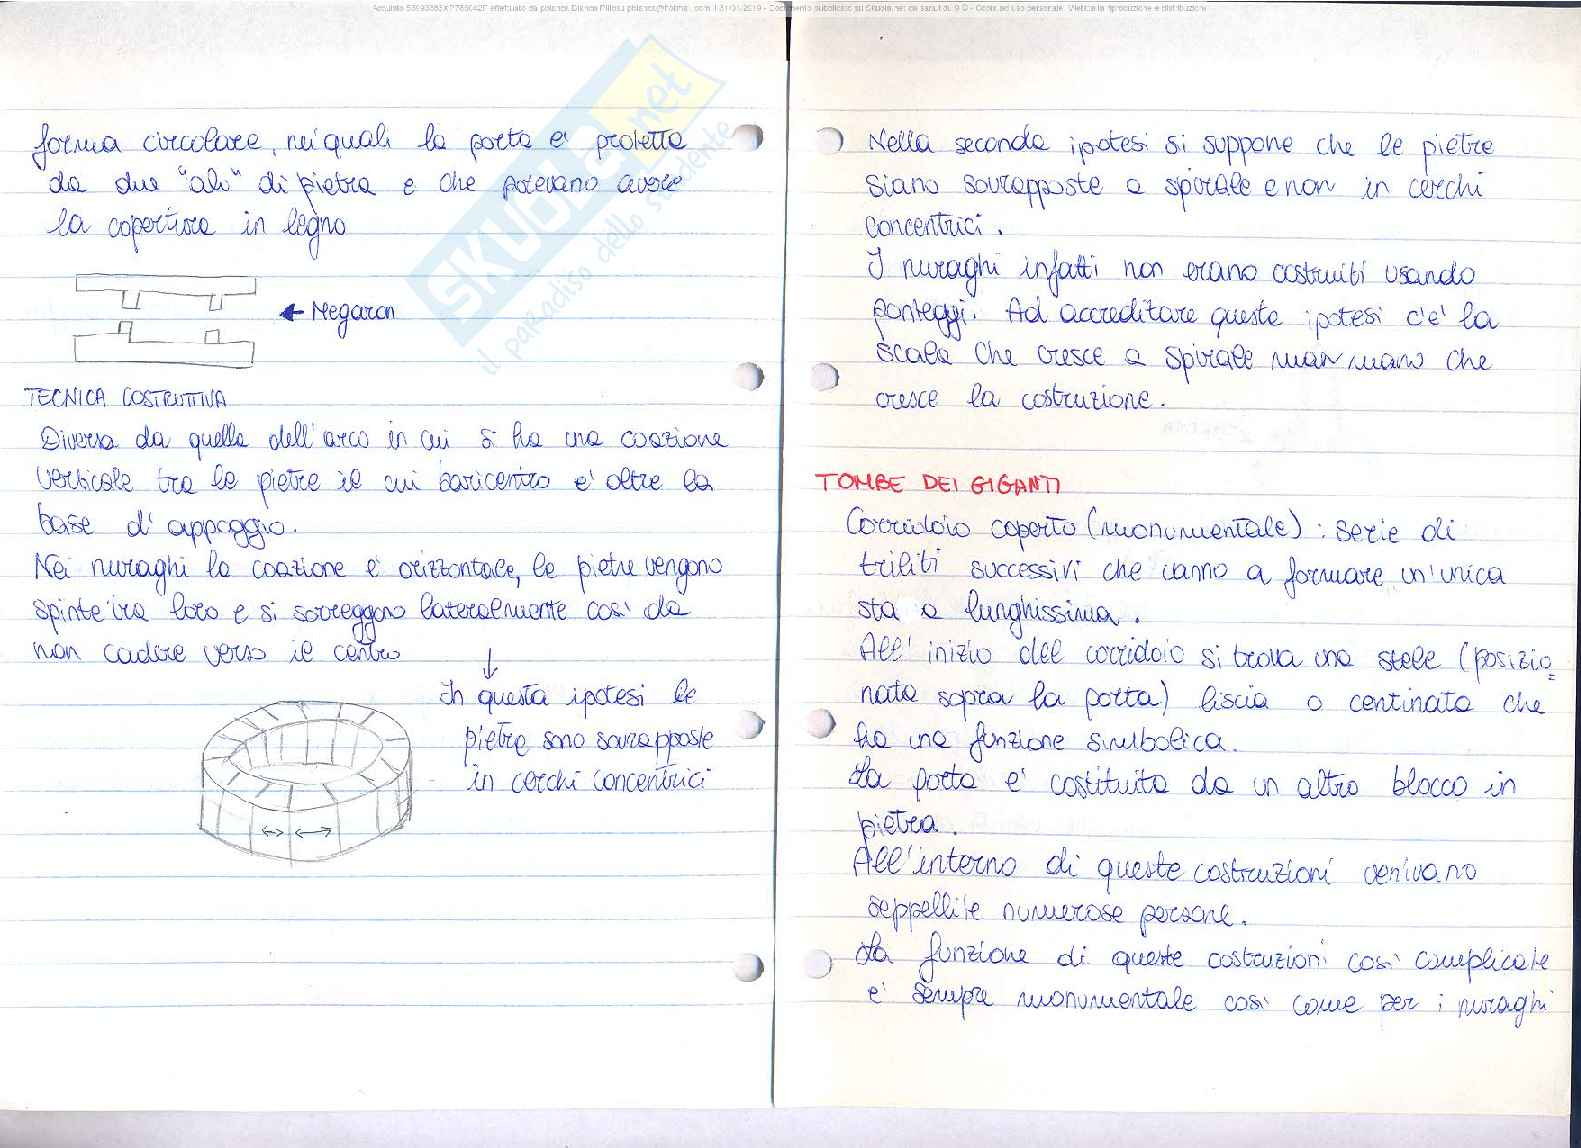 forma circolare, nei quali la porta e' protetta
da due "ali" di pietra e che potevano avere
la copertura in legno
← Megaron
TECNICA COSTRUTTIVA
Diversa da quella dell'arco in cui si ha una coazione
verticale tra le pietre il cui baricentro e' oltre la
base d'appoggio.
Nei nuraghi la coazione e' orizzontale, le pietre vengono
spinte tra loro e si sorreggono lateralmente così da
non cadere verso il centro
In questa ipotesi le
pietre sono sovrapposte
in cerchi concentrici
Nella seconda ipotesi si suppone che le pietre
siano sovrapposte a spirale e non in cerchi
concentrici.
I nuraghi infatti non erano costruiti usando
ponteggi. Ad accreditare questa ipotesi c'e' la
scala che cresce a spirale man mano che
cresce la costruzione.
TOMBE DEI GIGANTI
Corridoio coperto (monumentale): serie di
triliti successivi che vanno a formare un'unica
sta a lunghissima.
All'inizio del corridoio si trova una stele (posizio=
nata sopra la porta) liscia o centinata che
ha una funzione simbolica.
La porta e' costituita da un altro blocco in
pietra.
All'interno di queste costruzioni venivano
seppellite numerose persone.
La funzione di queste costruzioni così complicate
e' sempre monumentale così come per i nuraghi
SKUOLA.net
il paradiso dello studente